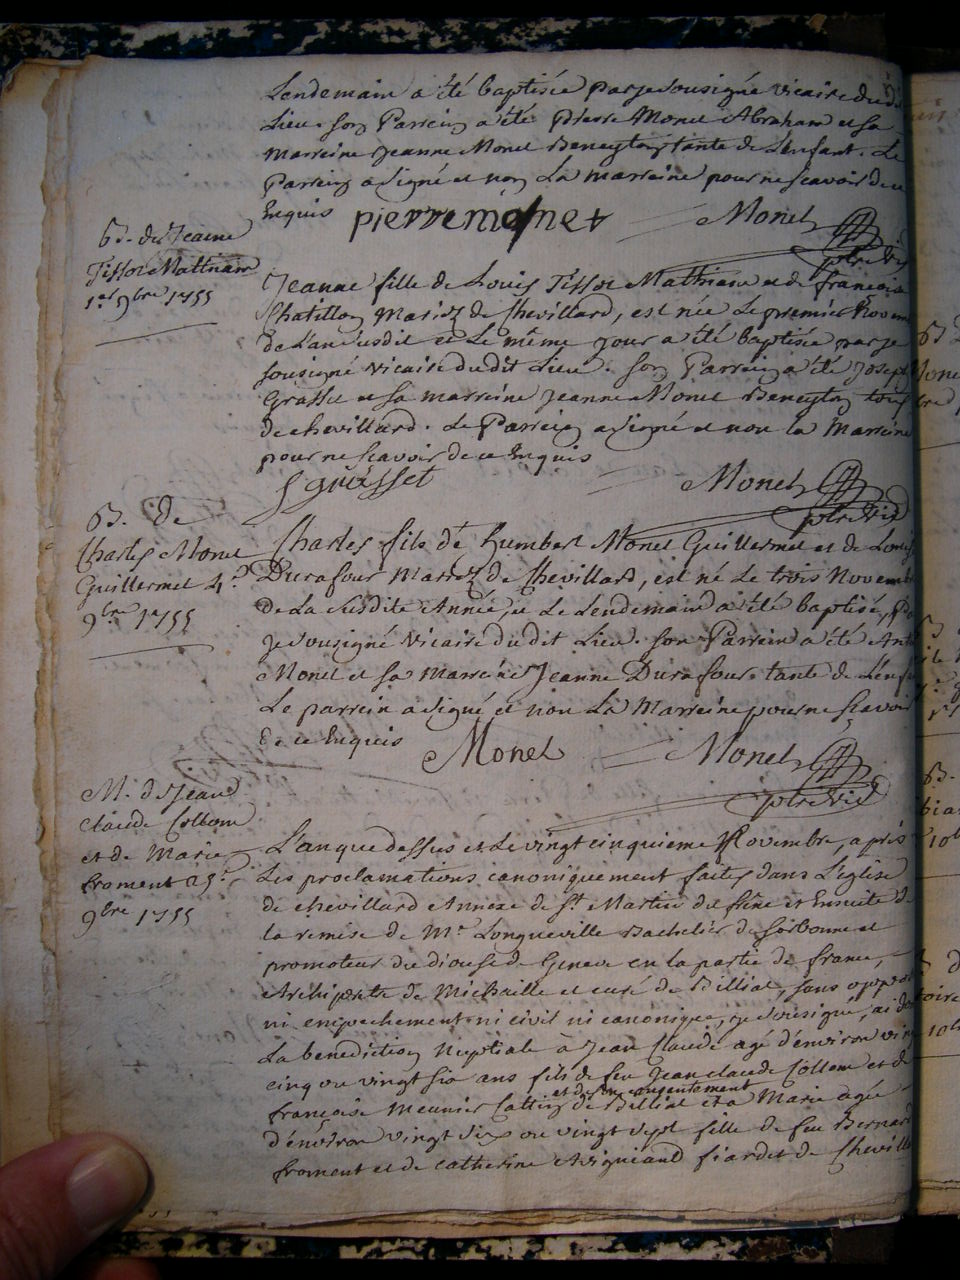 Lendemain a été baptisée par je soussigné vicaire dudt
Lieu. son Parrein a été Pierre Monet Abraham et sa
marreine Jeanne Monet Beneyton tante de L'enfant. Le
Parrein a signé et non La marreine pour ne scavoir de ce
Enquis pierre monet Monet
ptre vic
B. de Jeanne
Tissot Mathieu
1er 9bre 1755
Jeanne fille de Louis Tissot Mathieu et de francoise
Chatillon Mariez de Chevillard, est née Le premier Novem
de L'an susdit et Le même jour a été baptisée par je
sousigné vicaire du dit Lieu. son Parrein a été Joseph
Grasset et sa marreine Jeanne Monet Beneyton tous
de chevillard. Le Parrein a signé et non la Marreine
pour ne scavoir de ce Enquis
Monet
ptre vic
B. de
Charles Monet
Guillermet 4e
9bre 1755
Charles fils de humbert Monet Guillermet et de Louise
Durafour Mariez de Chevillard, est né Le trois Novembre
de La susdite Année, et Le Lendemain a été baptisé, par
je sousigné vicaire du dit Lieu. son Parrein a été Ant
Monet et sa marreine Jeanne Durafour tante de L'enf
Le parrein a signé et non La Marreine pour ne scavoir
de ce Enquis Monet Monet
ptre vic
M. de Jean
claude Collom
et de Marie
froment 25e
9bre 1755
L'an que dessus et Le vingt cinquieme Novembre, après
Les proclamations canoniquement faites dans L'eglise
de chevillard Annexe de St. Martin du frêne et Ensuite de
la remise de Mr Longueville Bachelier de sorbonne et
promoteur du diocese de Geneve en la partie de france,
Archiprêtre de Michaille et curé de Billiat, sans oppo
ni empechement ni civil ni canonique, je sousigné, ai do
La benediction Nuptiale à Jean Claude agé d'environ vin
cinq ou vingt six ans fils de feu Jean claude Collom et de
et de son consentement
françoise meunier de Billiat et a Marie agée
d'environ vingt six ou vingt sept fille de feu Bernard
froment et de catherine fiardet de Chevill